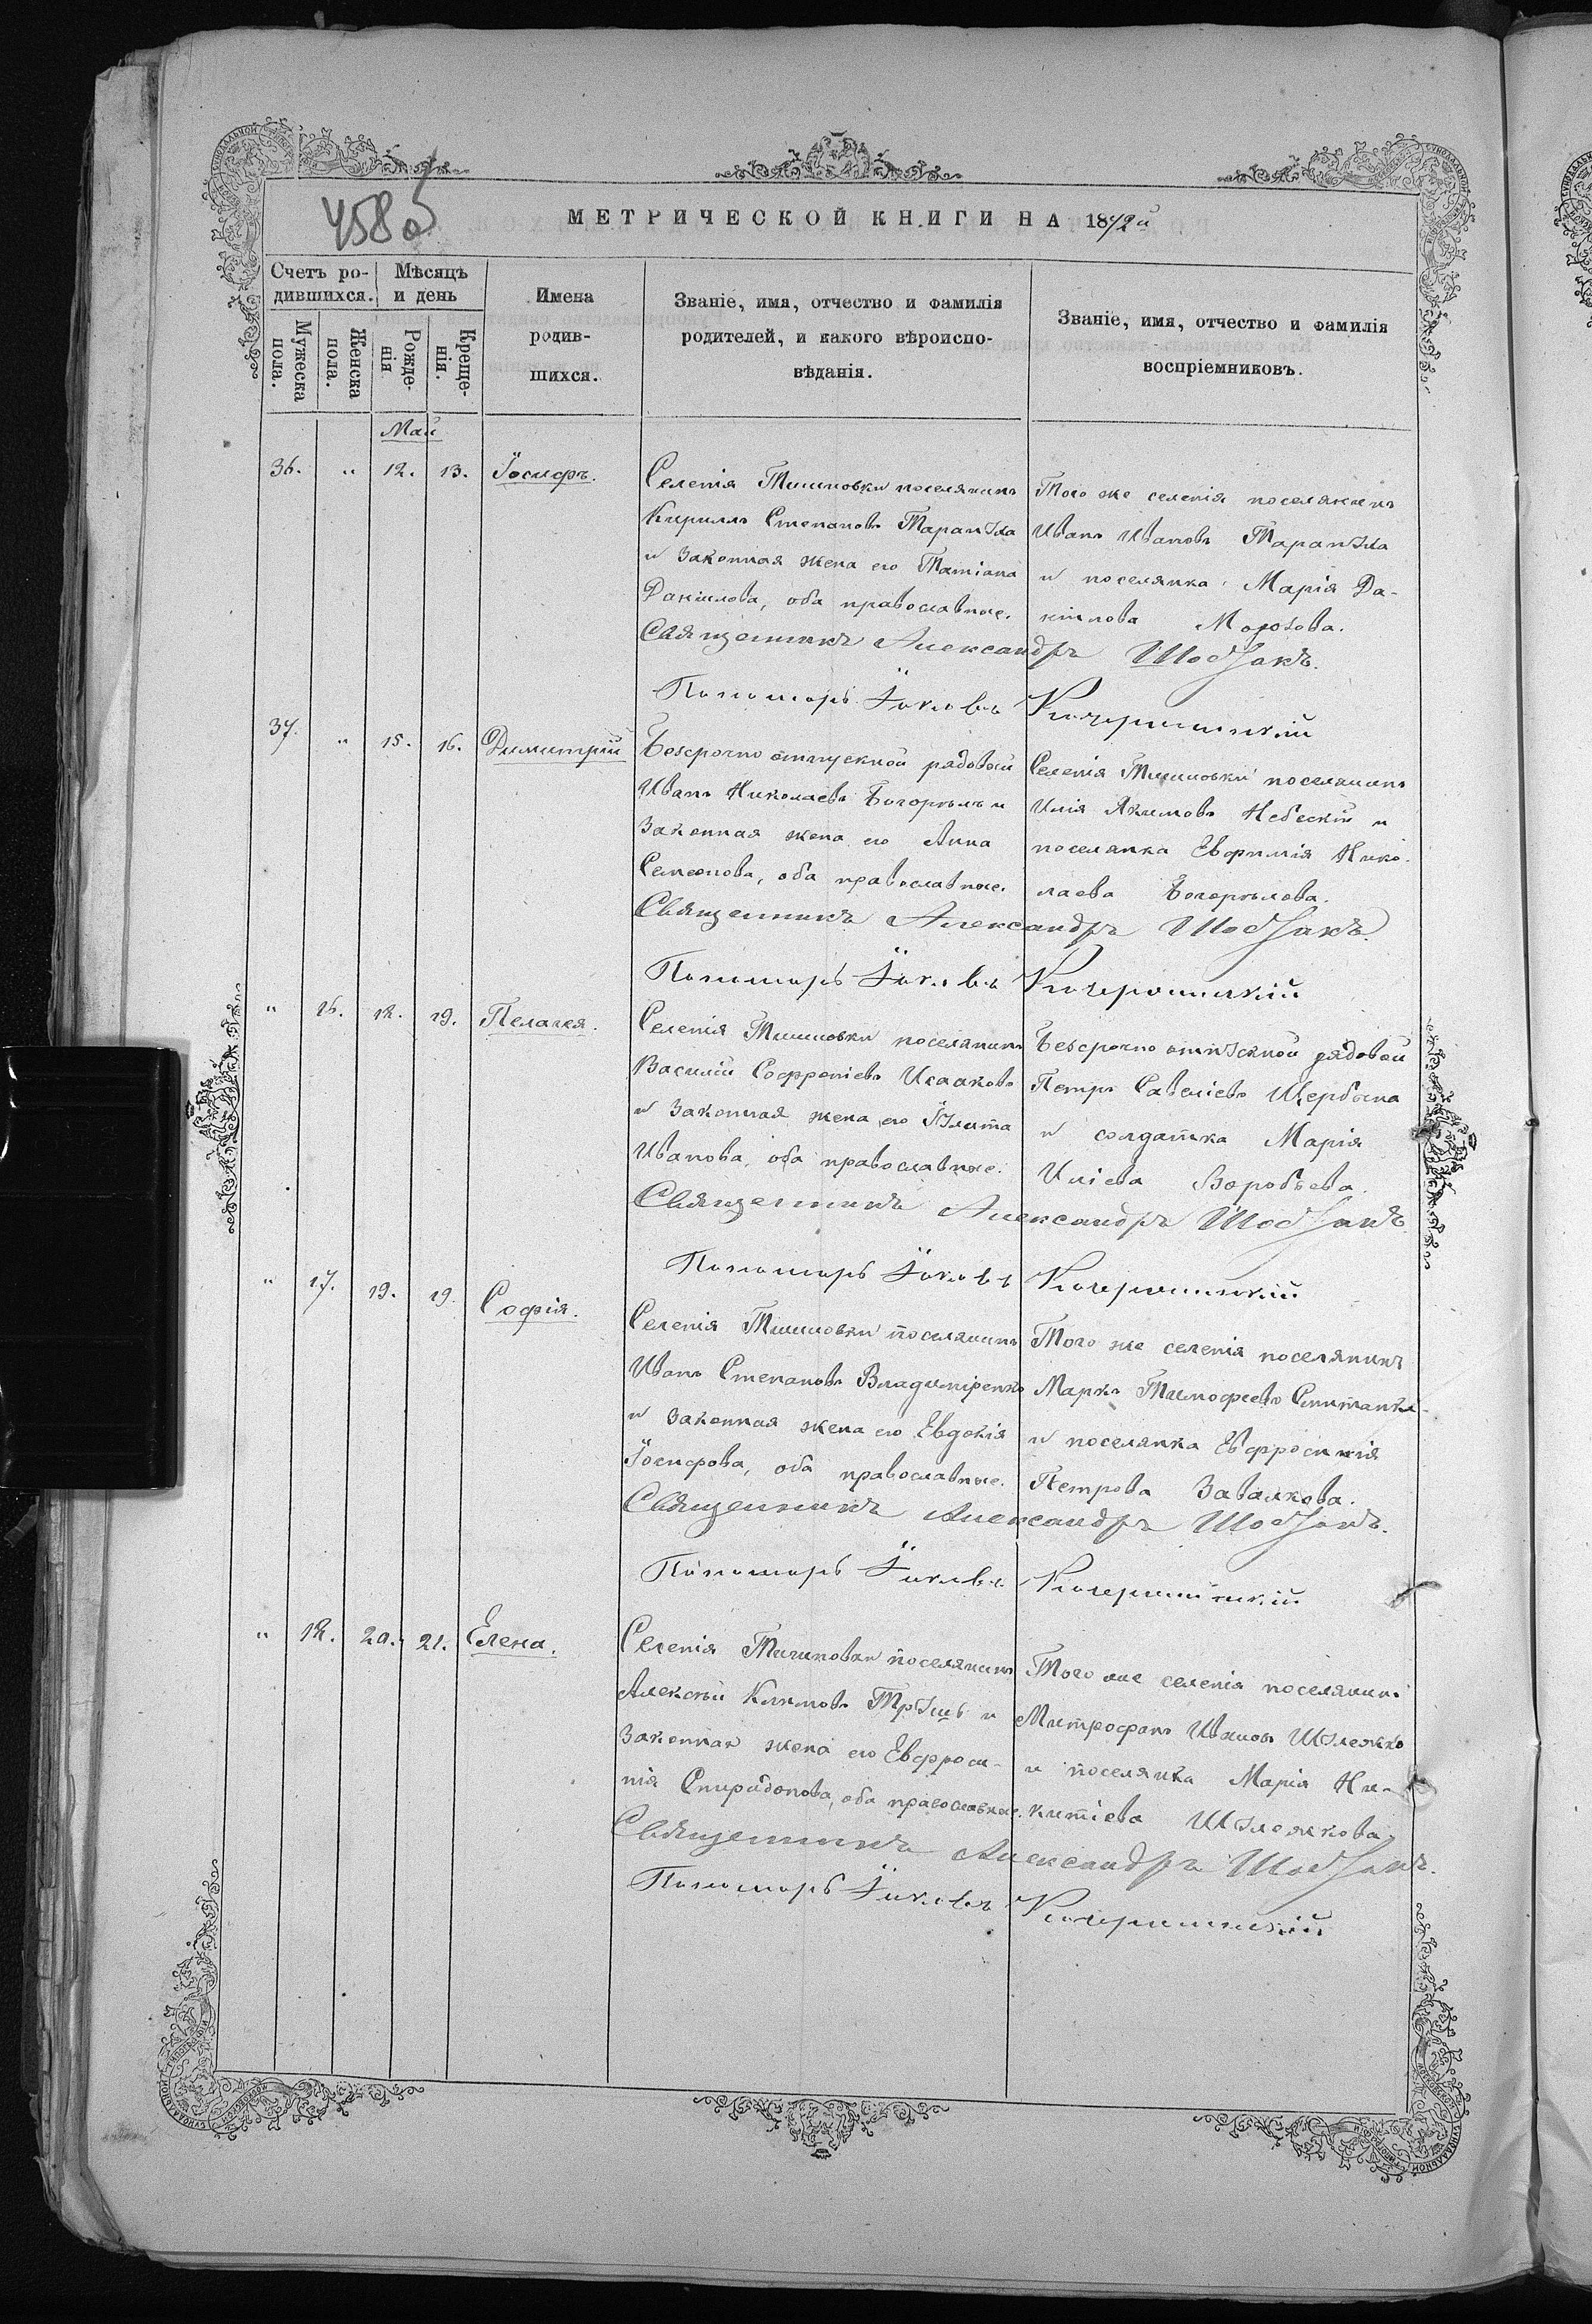 458 об
МЕТРИЧЕСКОЙ КНИГИ НА 1872й
Счетъ ро-
дившихся.
Мужеска
пола.
Женска
пола.
Мѣсяцъ
и день
Рожде-
нія
Креще-
нія.
Имена
родив-
шихся.
Званіе, имя, отчество и фамилія
родителей, и какого вѣроиспо-
вѣданія.
Званіе, имя, отчество и фамилія
воспріемниковъ.
Май
36. " 12. 13. Іосифъ.
Селенія Тишковки поселянинъ
Кирилъ Степановъ Тарануха
и законная жена его Татіана
Даніилова, оба православные.
Того же селенія поселянинъ
Иванъ Ивановъ Тарануха
и поселянка Марія Да-
ніилова Морозова.
Священникъ Александръ
Пономарь Іаковъ
37. " 15. 16. Димитрій
Безсрочно отпускной рядовой
Иванъ Николаевъ Погорѣлъ и
законная жена его Анна
Семенова, оба православные.
Селенія Тишковки поселянинъ
Илія Якимовъ Небескій и
поселянка Евфимія Нико-
лаева Погорѣлова.
Священникъ Александръ
Пономарь Іаковъ
" 16. 18. 19. Пелагея.
Селенія Тишковки поселянинъ
Василій Софроніевъ Исааковъ
и законная жена его Улита
Иванова, оба православные.
Безсрочно отпускной рядовой
Петръ Савеліевъ Щербина
и солдатка Марія
Иліева Воробьева.
Священникъ Александръ
Пономарь Іаковъ
" 17. 19. 19. Софія.
Селенія Тишковки поселянинъ
Иванъ Степановъ Владиміренко
и законная жена его Евдокія
Іосифова, оба православные.
Того же селенія поселянинъ
Марко Тимофеевъ
и поселянка Евфросинія
Петрова Завалкова.
Священникъ Александръ
Пономарь Іаковъ
" 18. 20. 21. Елена.
Селенія Тишковки поселянинъ
Алексѣй Климовъ и
законная жена его Евфроси-
нія Спиридонова, оба православные.
Того же селенія поселянинъ
Митрофанъ Ивановъ Шулежко
и поселянка Марія Ни-
китіева Шулежкова.
Священникъ Александръ
Пономарь Іаковъ